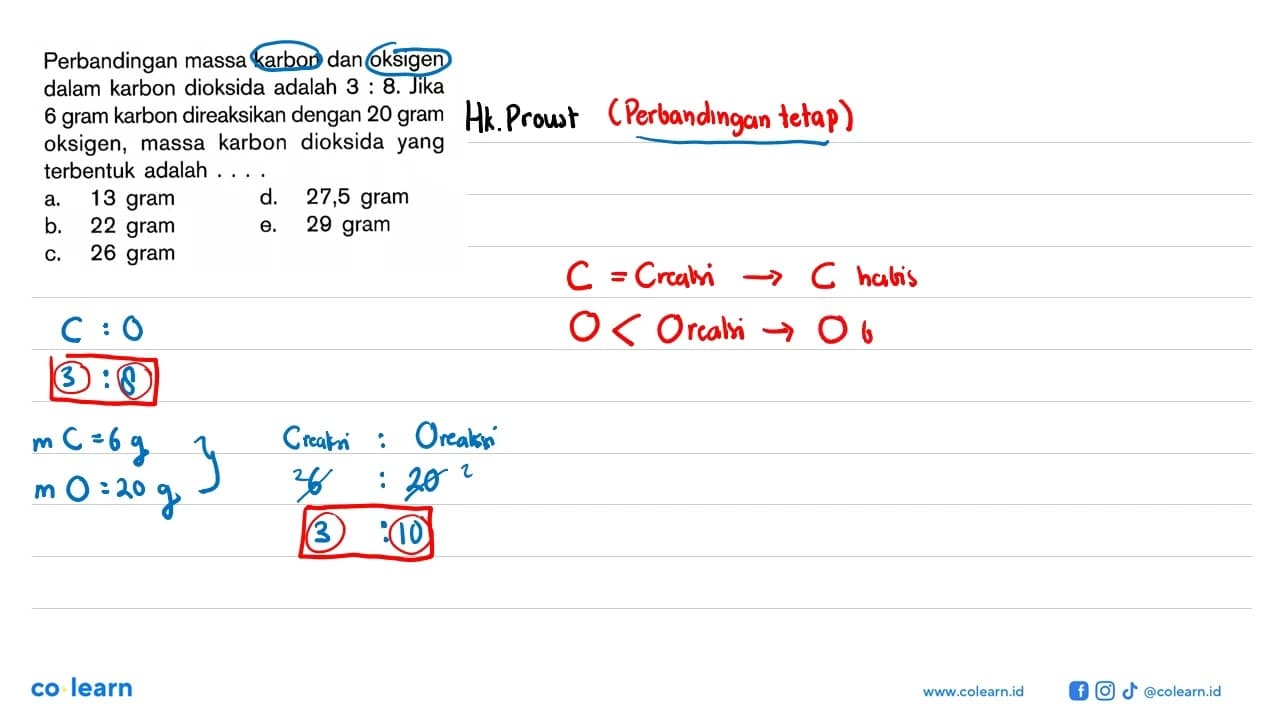 Perbandingan massa karbon dan oksigen
dalam karbon dioksida adalah 3 : 8. Jika
6 gram karbon direaksikan dengan 20 gram
oksigen, massa karbon dioksida yang
terbentuk adalah . . . .
a. 13 gram d. 27,5 gram
b. 22 gram e. 29 gram
c. 26 gram
Hk. Proust (Perbandingan tetap)
C = Creaksi → C habis
O < Oreaksi → O b
C : O
3 : 8
m C = 6 g
m O = 20 g
Creaksi : Oreaksi
2 6 : 20 2
3 : 10
co learn
www.colearn.id
@colearn.id